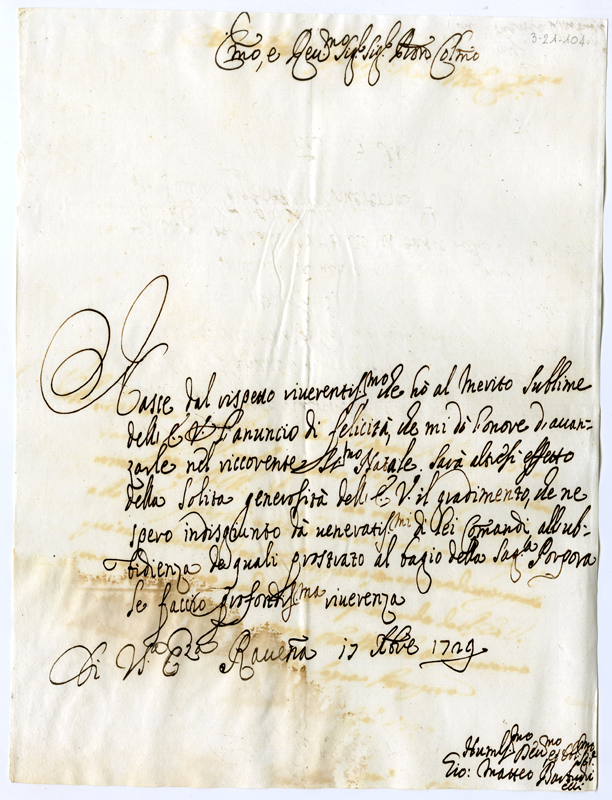 3-21-104
Emo, e Reu.mo Sig.re Sig.re Pron Colmo
Nasce dal rispetto riuerentiss.mo che hò al Merito sublime
dell'E. V. l'anuncio di felicità, che mi dò l'onore d'auan-
zarle nel riccorente SS.mo Natale. Sarà altresi effetto
della solita generosità dell'E. V. il gradimento, che ne
spero indisgiunto dà ueneratis.mi di lei Comandi, all'ub-
bidienza de quali prostrato al bagio della Sag.ta Porpora
le faccio profondiss.ma riuerenza
Di V.ra E.za Rauenna 17 Xbre 1729
Humiliss.mo Deu.mo
Gio: Matteo